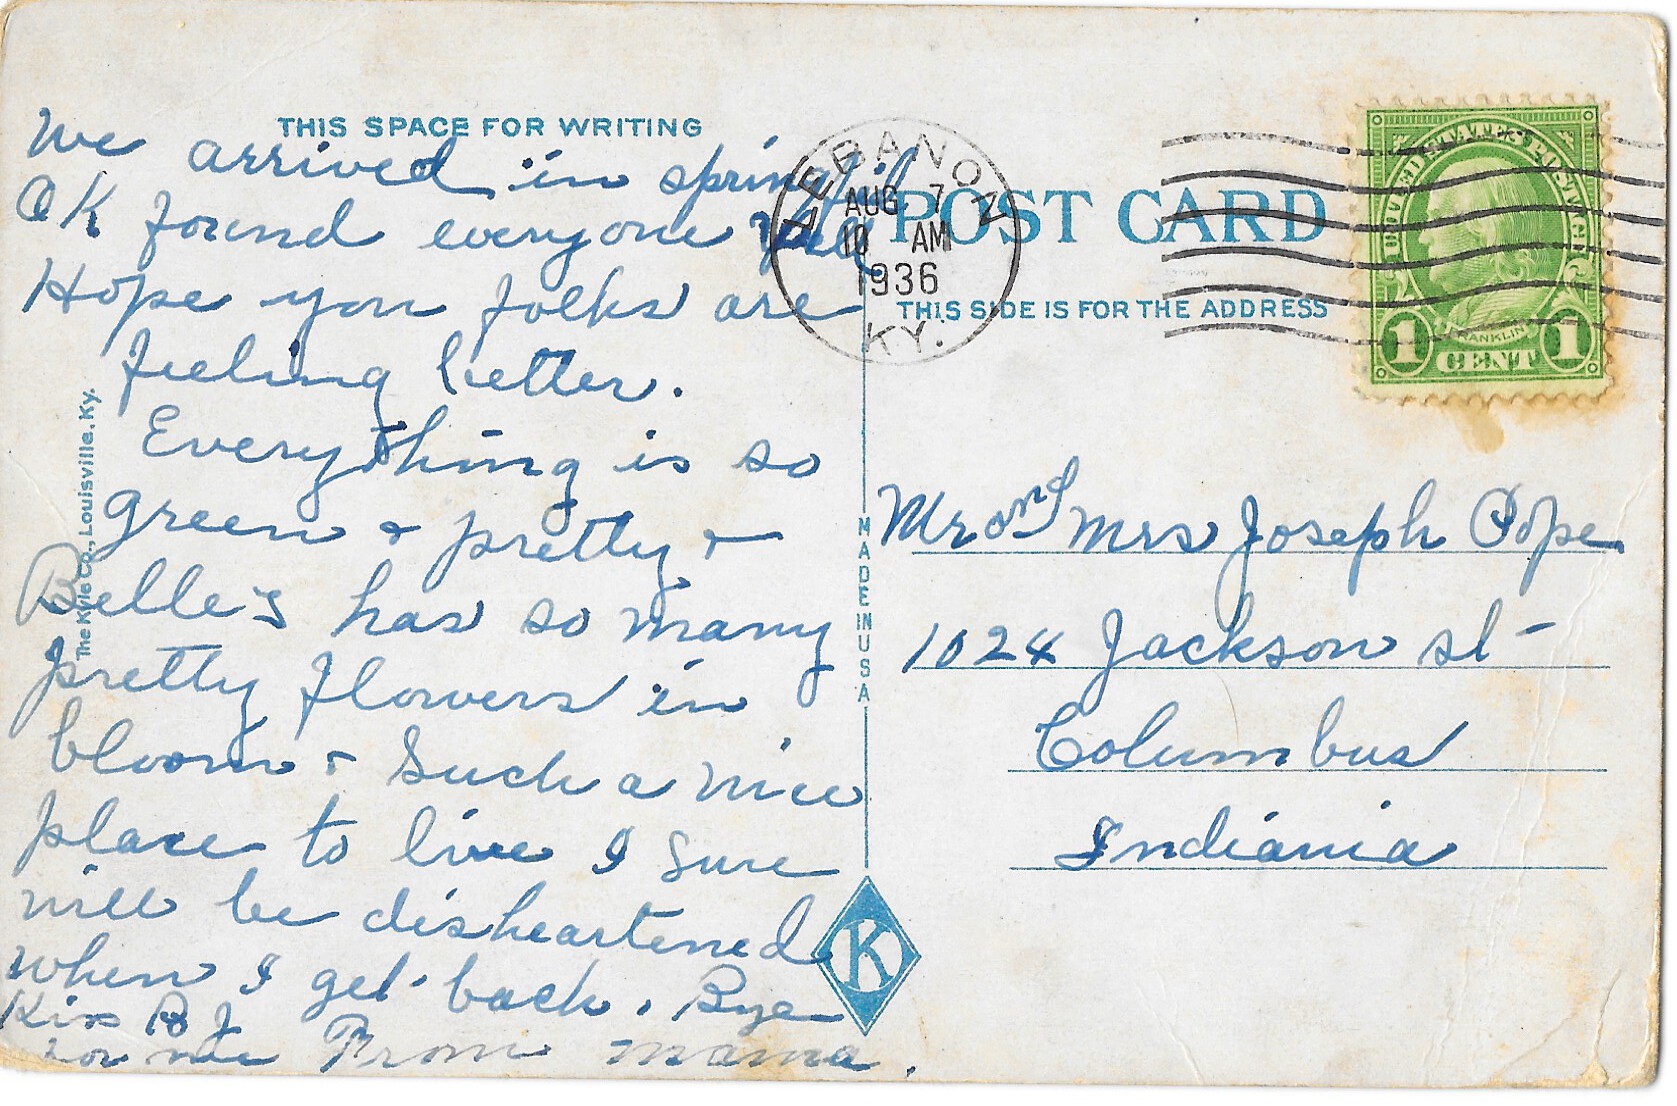 THIS SPACE FOR WRITING
We arrived in spring
OK found everyone
Hope you folks are
feeling better.
Everything is so
green + pretty +
Belle's has so many
pretty flowers in
bloom + such a nice
place to live I sure
will be disheartened
when I get back. Bye
Kiss B J
for me From Mama.
The Kyle Co., Louisville, Ky.
MADE IN USA
K
LEBANON
AUG 7
10 AM
1936
KY.
POST CARD
THIS SIDE IS FOR THE ADDRESS
UNITED STATES POSTAGE
FRANKLIN
1 CENT 1
Mr and Mrs Joseph Pope
1024 Jackson st -
Columbus
Indiania